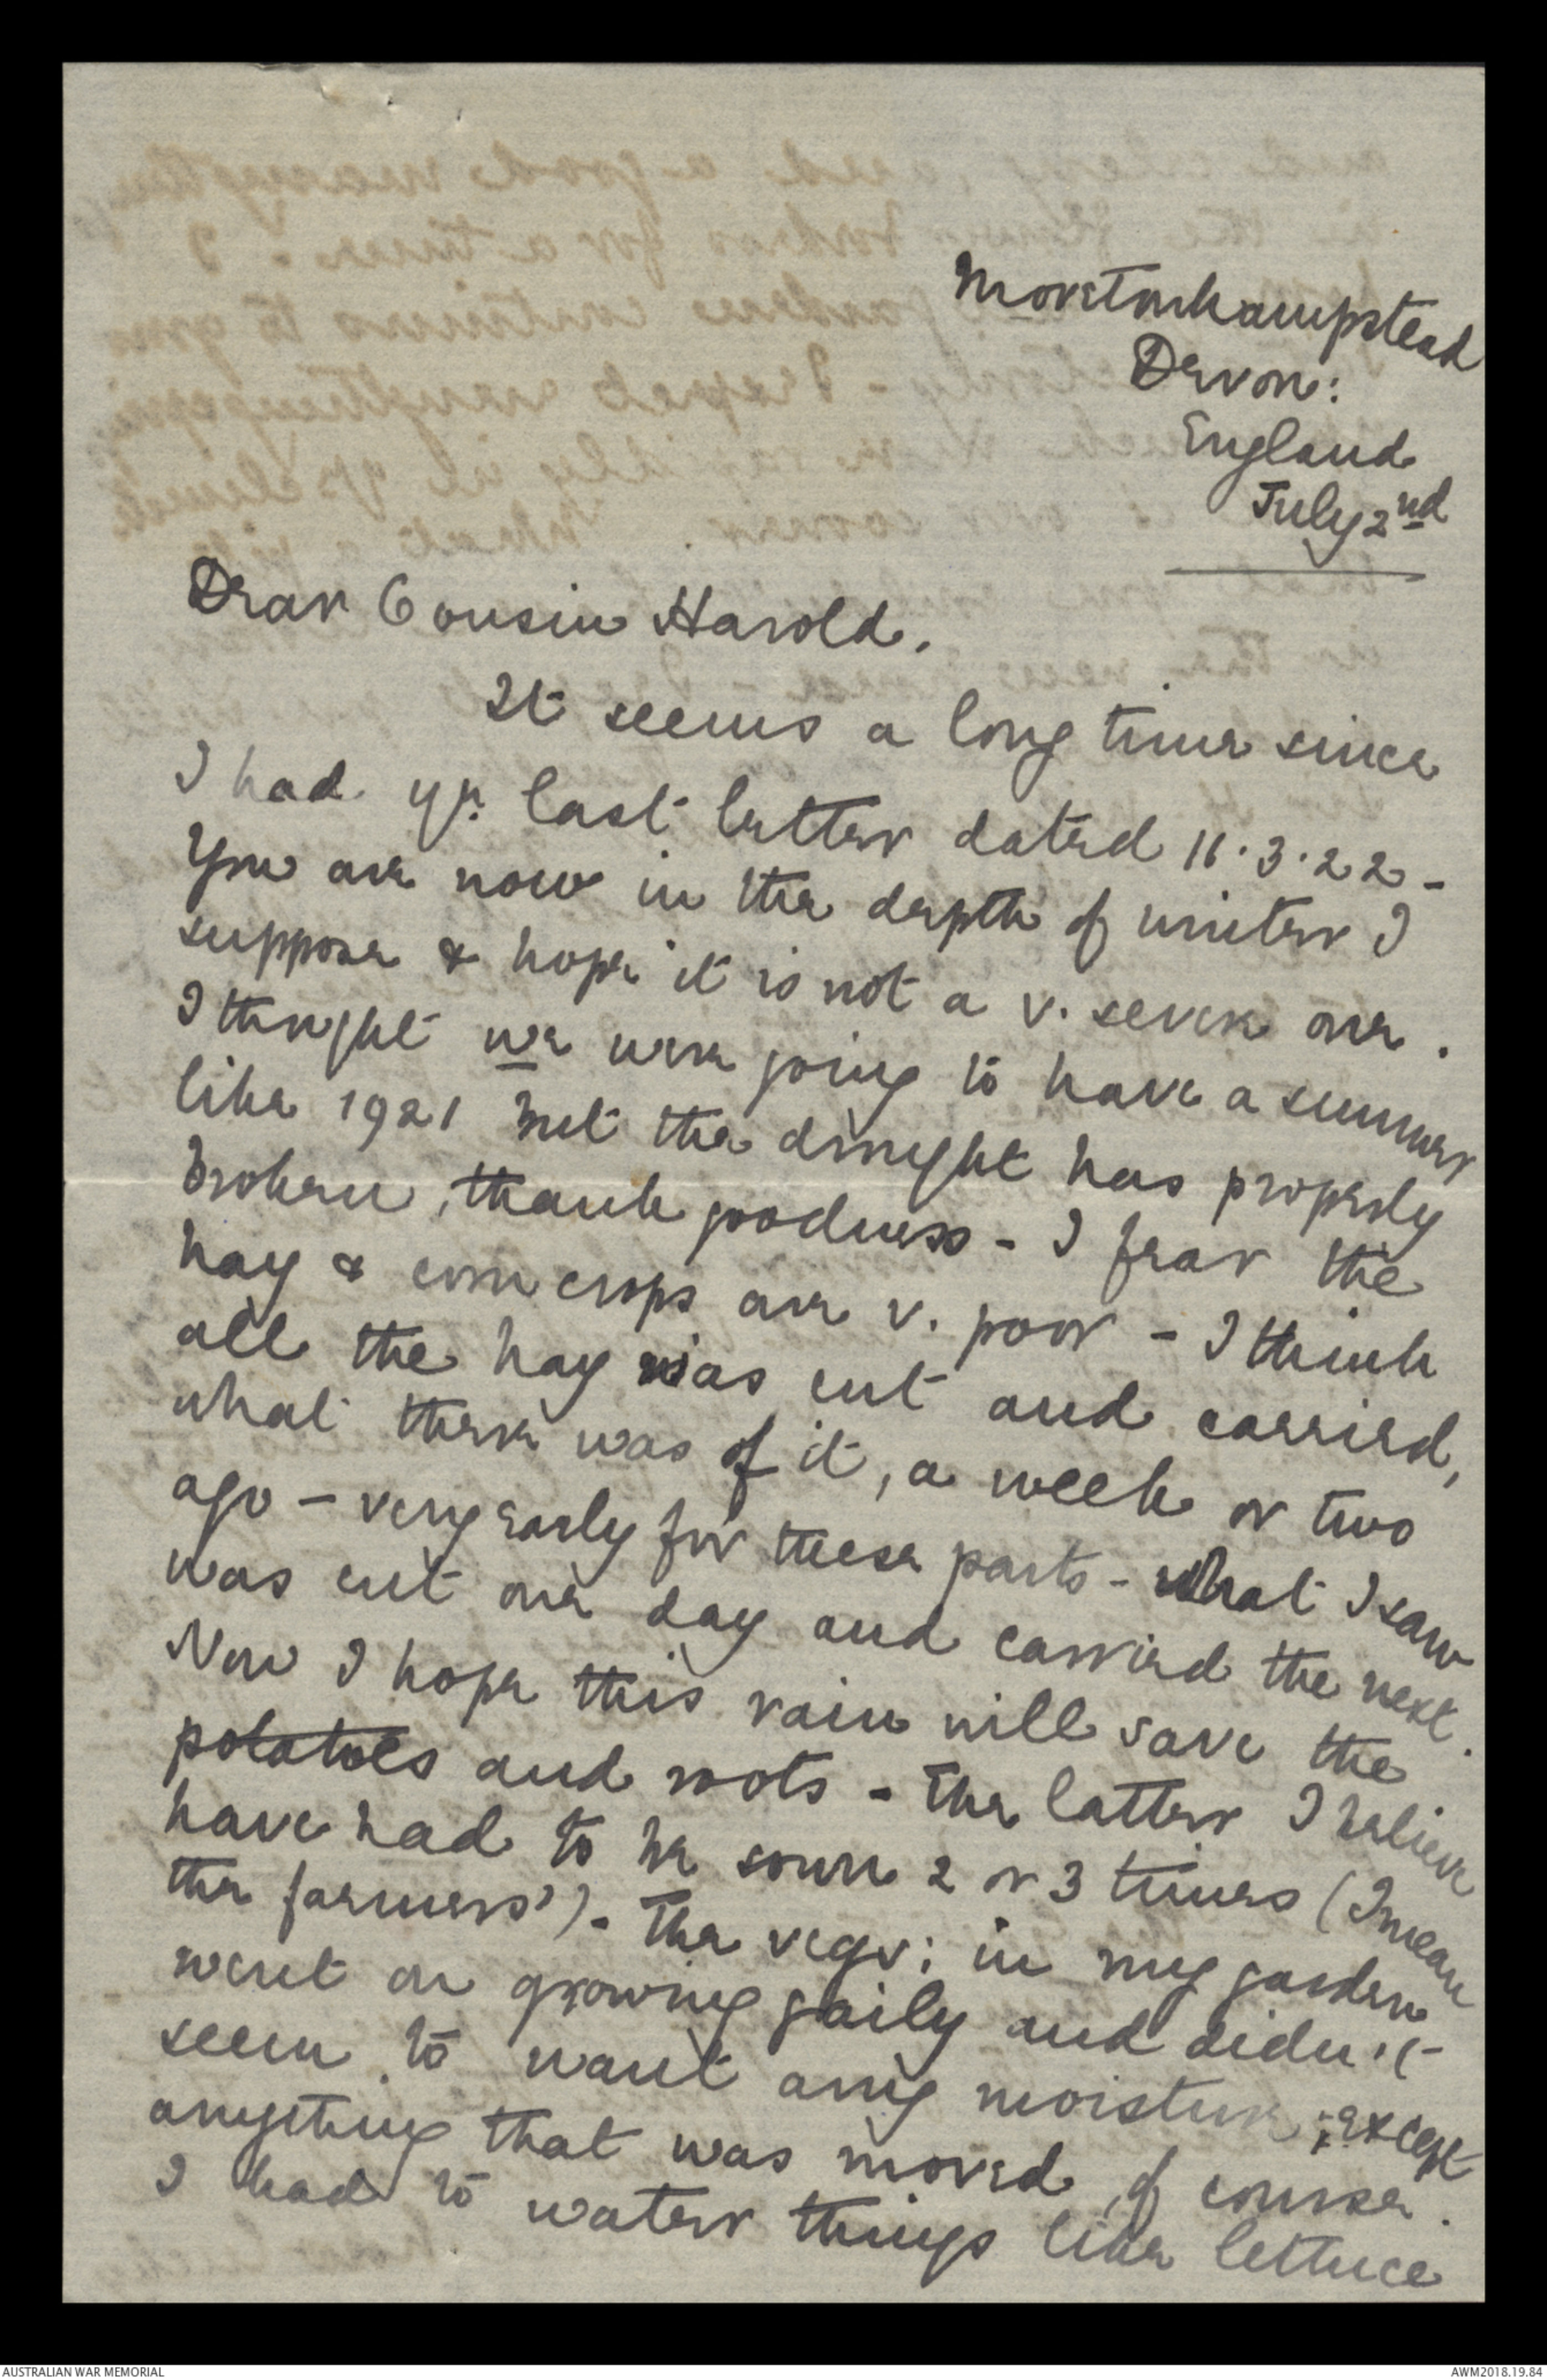 Moretonhampstead
Devon:
England
July 2nd
Dear Cousin Harold.
It seems a long time since
I had yr. last letter dated 11.3.22 -
You are now in the depth of winter I
suppose & hope it is not a v. severe one.
I thought we were going to have a summer
like 1921 but the drought has properly
broken, thank goodness - I fear the
hay & corn crops are v. poor - I think
all the hay was cut and carried,
what there was of it, a week or two
ago - very early for these parts - what I saw
was cut one day and carried the next.
Now I hope this rain will save the
potatoes and roots - The latter I believe
have had to be sown 2 or 3 times (I mean
the farmers'). The vegs: in my garden
went on growing gaily and didn't
seem to want any moisture, except
anything that was moved, of course.
I had to water things like lettuce
AUSTRALIAN WAR MEMORIAL
AWM2018.19.84